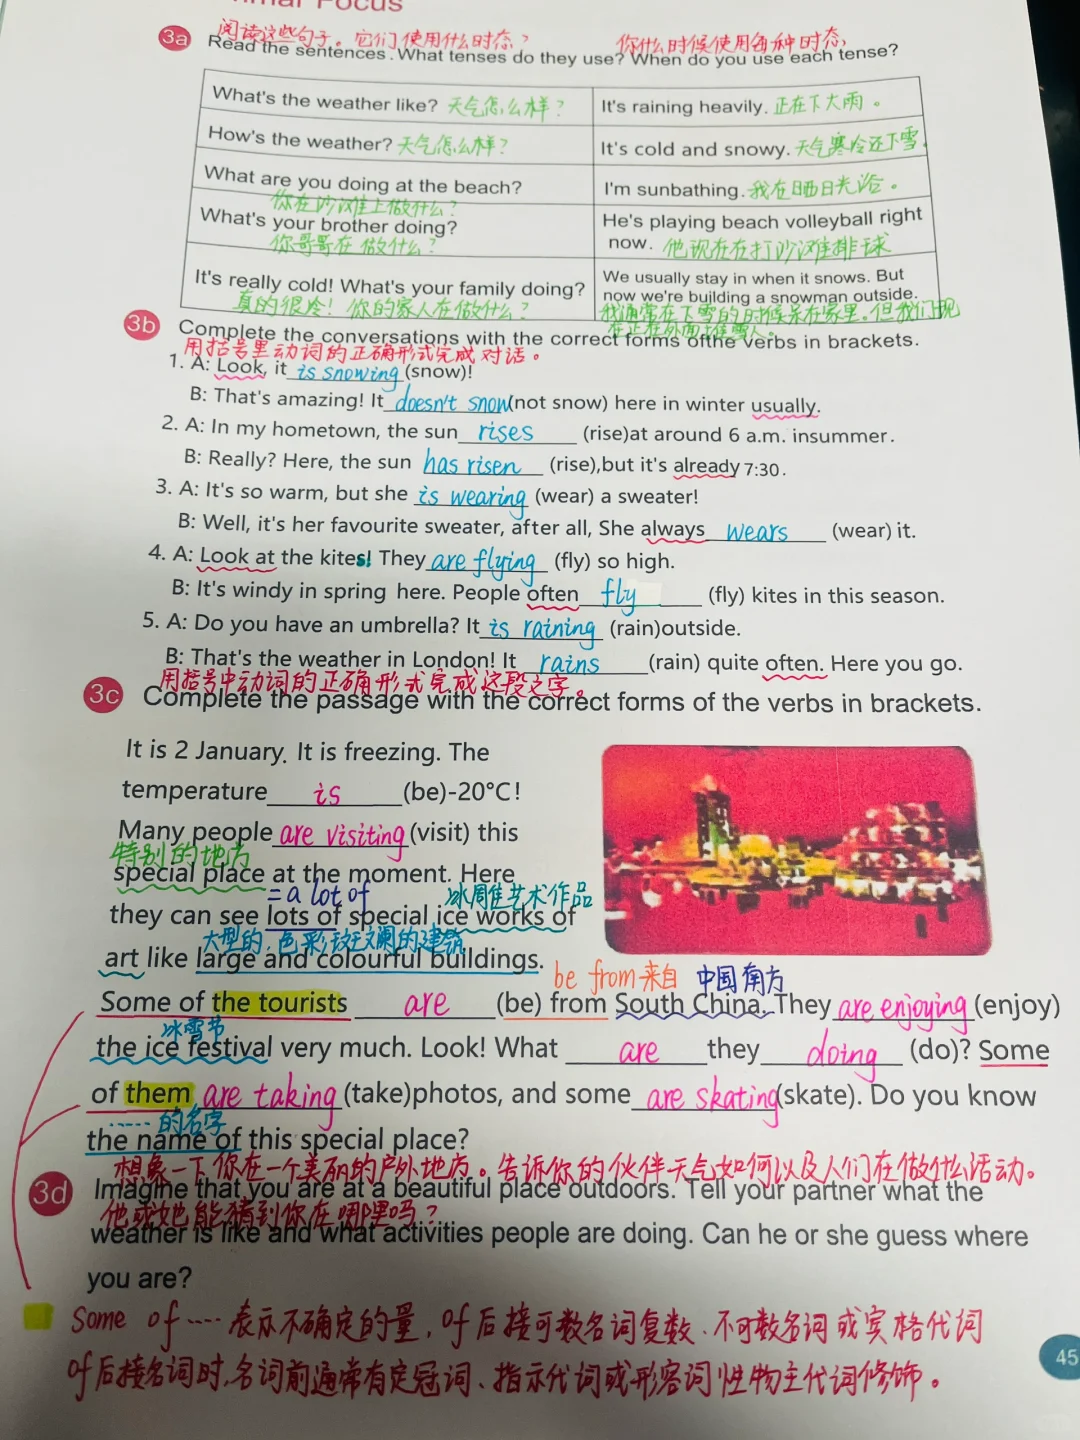 mmar Focus
阅读这些句子。它们使用什么时态? 你什么时候使用每种时态,
3a Read the sentences. What tenses do they use? When do you use each tense?
What's the weather like? 天气怎么样? It's raining heavily. 正在下大雨。
How's the weather? 天气怎么样? It's cold and snowy. 天气寒冷还下雪.
What are you doing at the beach? I'm sunbathing. 我在晒日光浴。
你在沙滩上做什么?
What's your brother doing? He's playing beach volleyball right
你哥哥在做什么? now. 他现在在打沙滩排球
It's really cold! What's your family doing? We usually stay in when it snows. But
now we're building a snowman outside.
真的很冷! 你的家人在做什么? 我通常在下雪的时候呆在家里。但我们现
在正在外面堆雪人。
3b Complete the conversations with the correct forms ofthe verbs in brackets.
用括号里动词的正确形式完成对话。
1. A: Look, it is snowing (snow)!
B: That's amazing! It doesn't snow (not snow) here in winter usually.
2. A: In my hometown, the sun rises (rise)at around 6 a.m. insummer.
B: Really? Here, the sun has risen (rise),but it's already 7:30.
3. A: It's so warm, but she is wearing (wear) a sweater!
B: Well, it's her favourite sweater, after all, She always wears (wear) it.
4. A: Look at the kites! They are flying (fly) so high.
B: It's windy in spring here. People often fly (fly) kites in this season.
5. A: Do you have an umbrella? It is raining (rain)outside.
B: That's the weather in London! It rains (rain) quite often. Here you go.
用括号中动词的正确形式完成这段文字。
3c Complete the passage with the correct forms of the verbs in brackets.
It is 2 January. It is freezing. The
temperature is (be)-20°C!
Many people are visiting (visit) this
特别的地方
special place at the moment. Here
= a lot of 冰雕艺术作品
they can see lots of special ice works of
大型的,色彩斑斓的建筑
art like large and colourful buildings.
be from 来自 中国南方
Some of the tourists are (be) from South China. They are enjoying (enjoy)
冰雪节
the ice festival very much. Look! What are they doing (do)? Some
of them are taking (take)photos, and some are skating (skate). Do you know
······的名字
the name of this special place?
想象一下你在一个美丽的户外地方。告诉你的伙伴天气如何以及人们在做什么活动。
3d Imagine that you are at a beautiful place outdoors. Tell your partner what the
他或她能猜到你在哪里吗?
weather is like and what activities people are doing. Can he or she guess where
you are?
Some of ···· 表示不确定的量, of后接可数名词复数、不可数名词或宾格代词
of后接名词时,名词前通常有定冠词、指示代词或形容词性物主代词修饰。
45